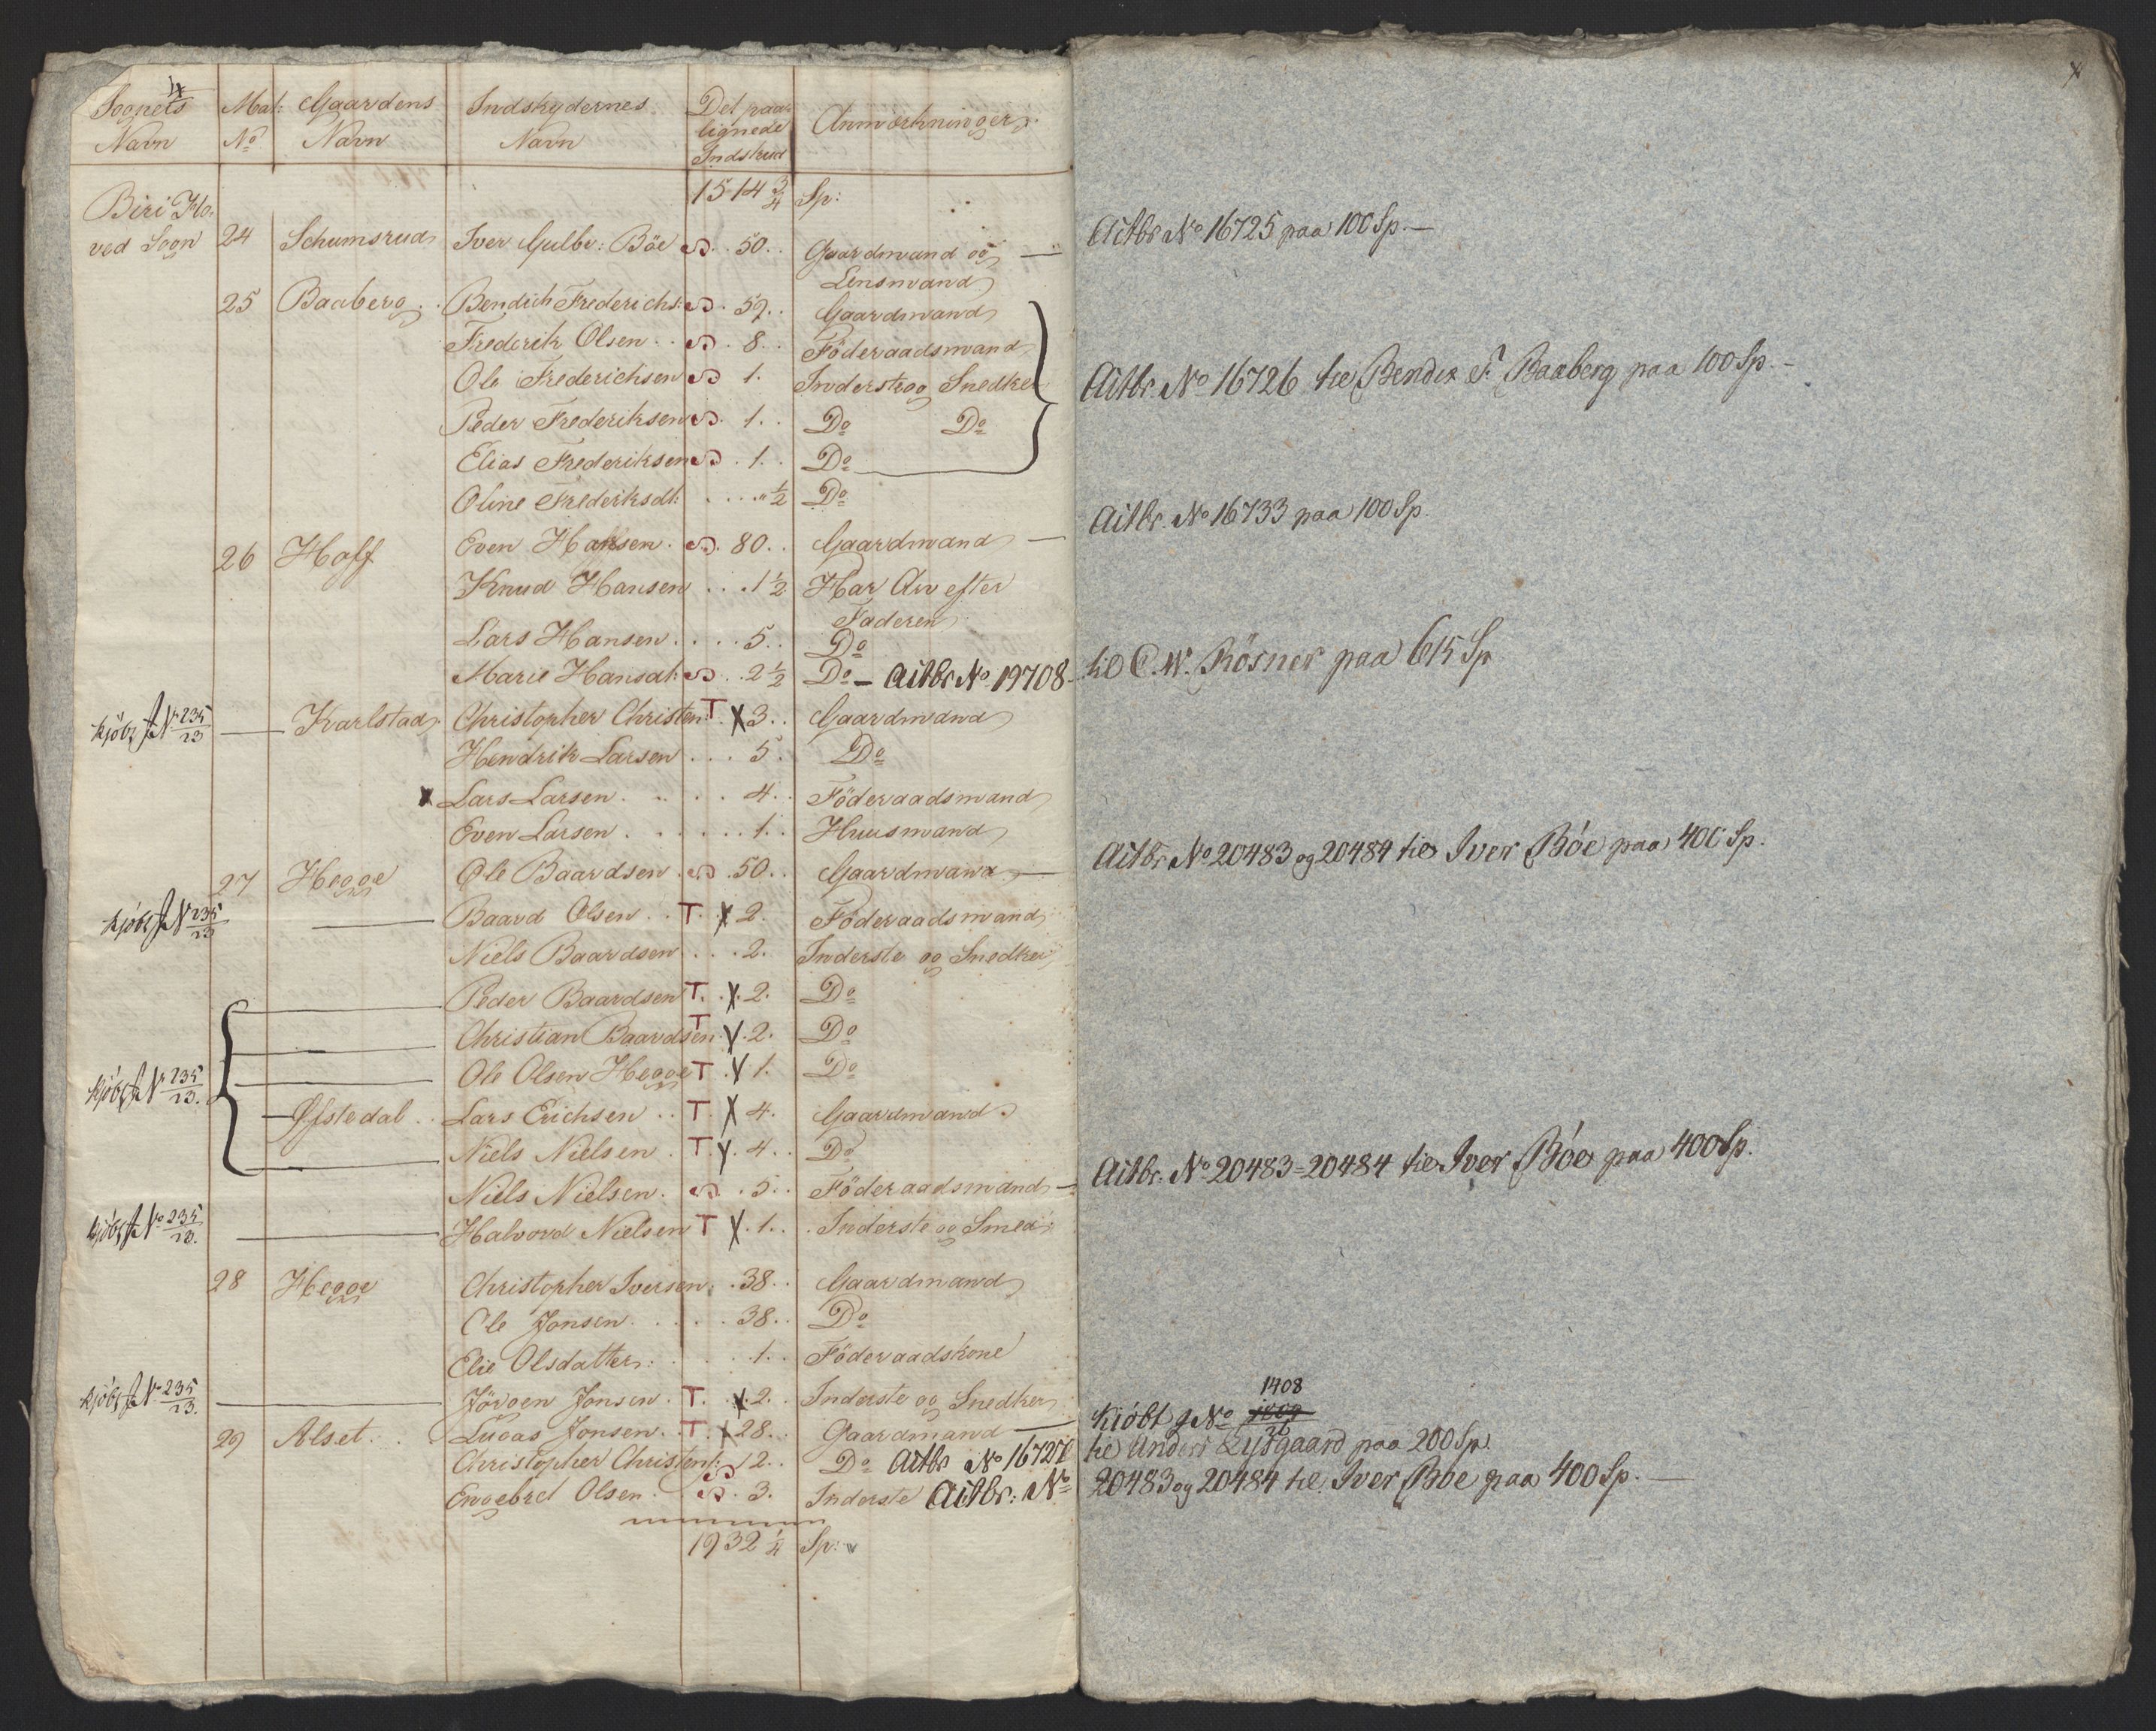 4
Sognets Navn | Mat: No | Gaardens Navn | Indskydernes Navn | Det paalignede Indskud | Anmærkninger
1514 3/4 Sp:
Biri Ho-
ved Sogn 24 Schumsrud Iver Gulbr: Böe S. 50. Gaardmand og —
Lensmand
Actbr No 16725 paa 100 Sp. —
25 Baaberg Bendich Frederichs: S. 59. Gaardmand
Frederik Olsen S. 8. Föderaadsmand
Ole Frederichsen S 1. Inderste og Snedker
Actbr. No 16726 til Bendix F. Baaberg paa 100 Sp. -
Peder Frederiksen S. 1. Do Do
Elias Frederiksen S. 1. Do
Oline Frederiksdt: " 1/2 Do
26 Hoff Even Hansen. S. 80. Gaardmand —
Actbr. No 16733 paa 100 Sp.
Knud Hansen 1 1/2 Har Arv efter
Faderen
Lars Hansen 5. Do
Marie Hansdt: S. 2 1/2 Do — Actbr No 19708 - til C. W. Rösner paa 615 Sp
kjöbt J No 235/23 — Karlstad Christopher Christen: T. X 3. Gaardmand
Hendrik Larsen 5. Do
X Lars Larsen. 4. Föderaadsmand
Even Larsen 1. Huusmand
27 Hegge Ole Baardsen S. 50. Gaardmand —
Actbr No 20483 og 20484 til Iver Bóe paa 400 Sp.
kjöbt J No 235/23 — Baard Olsen T. X 2. Föderaadsmand
Niels Baardsen 2. Inderste og Snedker
— Peder Baardsen T. X. 2. Do
— Christian Baardsen T. X. 2. Do
kjöbt J No 235/23. — Ole Olsen Hegge T. X 1. Do
— Öfstedal Lars Erichsen T. X 4. Gaardmand
— Niels Nielsen T. X. 4. Do
Niels Nielsen. S. 5. Föderaadsmand —
Actbr. No 20483=20484 til Iver Bóe paa 400 Sp.
kjöbt J No 235/23. — Halvord Nielsen T X. 1. Inderste og Smed
28 Hegge Christopher Iversen 38. Gaardmand
Ole Jonsen 38. Do
Elie Olsdatter 1. Föderaadskone
kjöbt J No 235/23. — Jörgen Jonsen T. X. 2. Inderste og Snedker
29 Alset. Lucas Jonsen T. X 28. Gaardmand —
1408
Kióbt J No 1809/26
Christopher Christens: S 12. Do Actbr No 16727 til Anders Lysgaard paa 200 Sp.
Engebret Olsen. S. 3. Inderste Actbr: No 20483 og 20484 til Iver Bóe paa 400 Sp. —
1932 1/4 Sp: